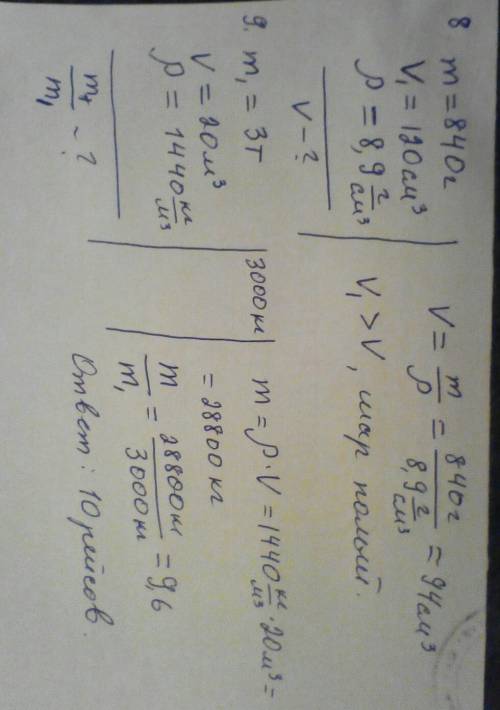 8 m = 840г
V₁ = 120см³
ρ = 8,9 г/см³
V - ?
V = m/ρ = 840г / 8,9 г/см³ = 94см³
V₁ > V, шар полый.
9. m₁ = 3т
V = 20м³
ρ = 1440 кг/м³
m/m₁ - ?
3000кг
m = ρ·V = 1440 кг/м³ · 20м³ =
= 28800кг
m/m₁ = 28800кг / 3000кг = 9,6
Ответ: 10 рейсов.